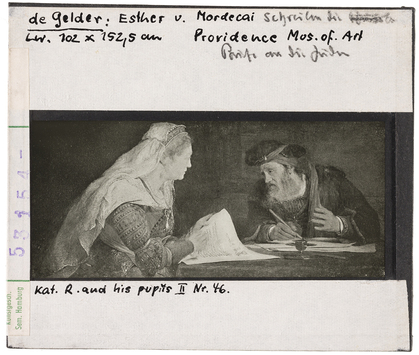 de Gelder: Esther u. Mordecai schreiben die
Lw. 102 x 152,5 cm Providence Mus. of. Art
Briefe an die Juden
53154-
Kunstgesch.
Sem. Hamburg
Kat. R. and his pupils II Nr. 46.